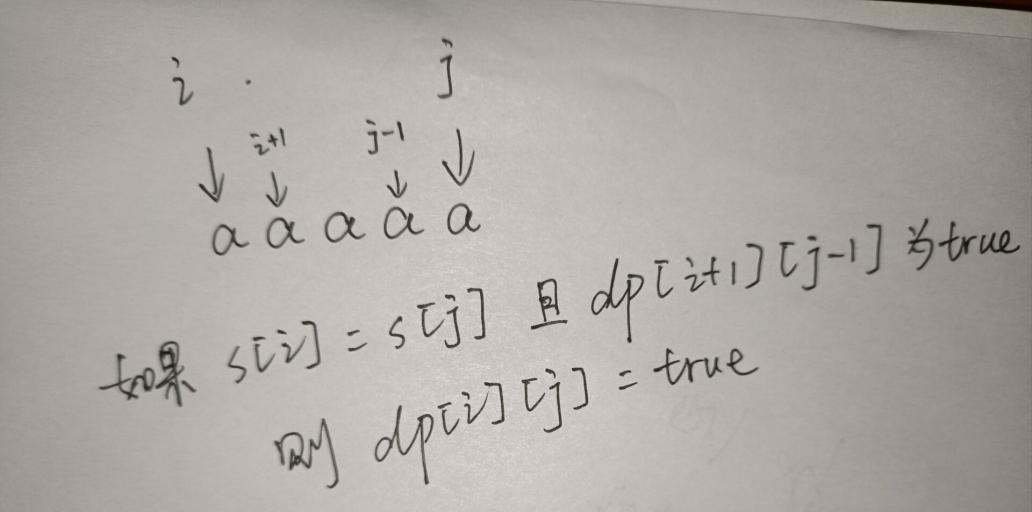 i j
i+1 j-1
a a a a a
如果 s[i] = s[j] 且 dp[i+1][j-1] 为true
则 dp[i][j] = true